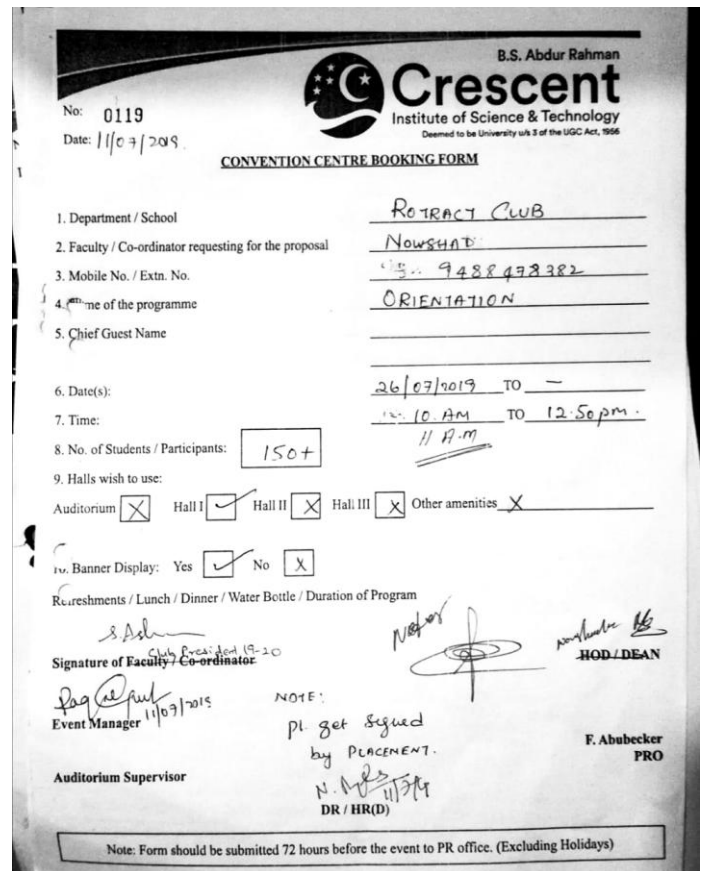 B.S. Abdur Rahman
Crescent
Institute of Science & Technology
Deemed to be University u/s 3 of the UGC Act, 1956
No: 0119
Date: 11/07/2019
CONVENTION CENTRE BOOKING FORM
1. Department / School ROTRACT CLUB
2. Faculty / Co-ordinator requesting for the proposal NOWSHAD
3. Mobile No. / Extn. No. 9488478382
4. me of the programme ORIENTATION
5. Chief Guest Name
6. Date(s): 26/07/2019 TO —
7. Time: 10. AM TO 12.50 pm.
11 A.m
8. No. of Students / Participants: 150+
9. Halls wish to use:
Auditorium X Hall I ✓ Hall II X Hall III X Other amenities X
10. Banner Display: Yes ✓ No X
Refreshments / Lunch / Dinner / Water Bottle / Duration of Program
Club President 19-20
Signature of Faculty / Co-ordinator
HOD / DEAN
11/07/2019
Event Manager
NOTE:
Pl. get signed
by PLACEMENT.
F. Abubecker
PRO
Auditorium Supervisor
11/7/19
DR / HR(D)
Note: Form should be submitted 72 hours before the event to PR office. (Excluding Holidays)